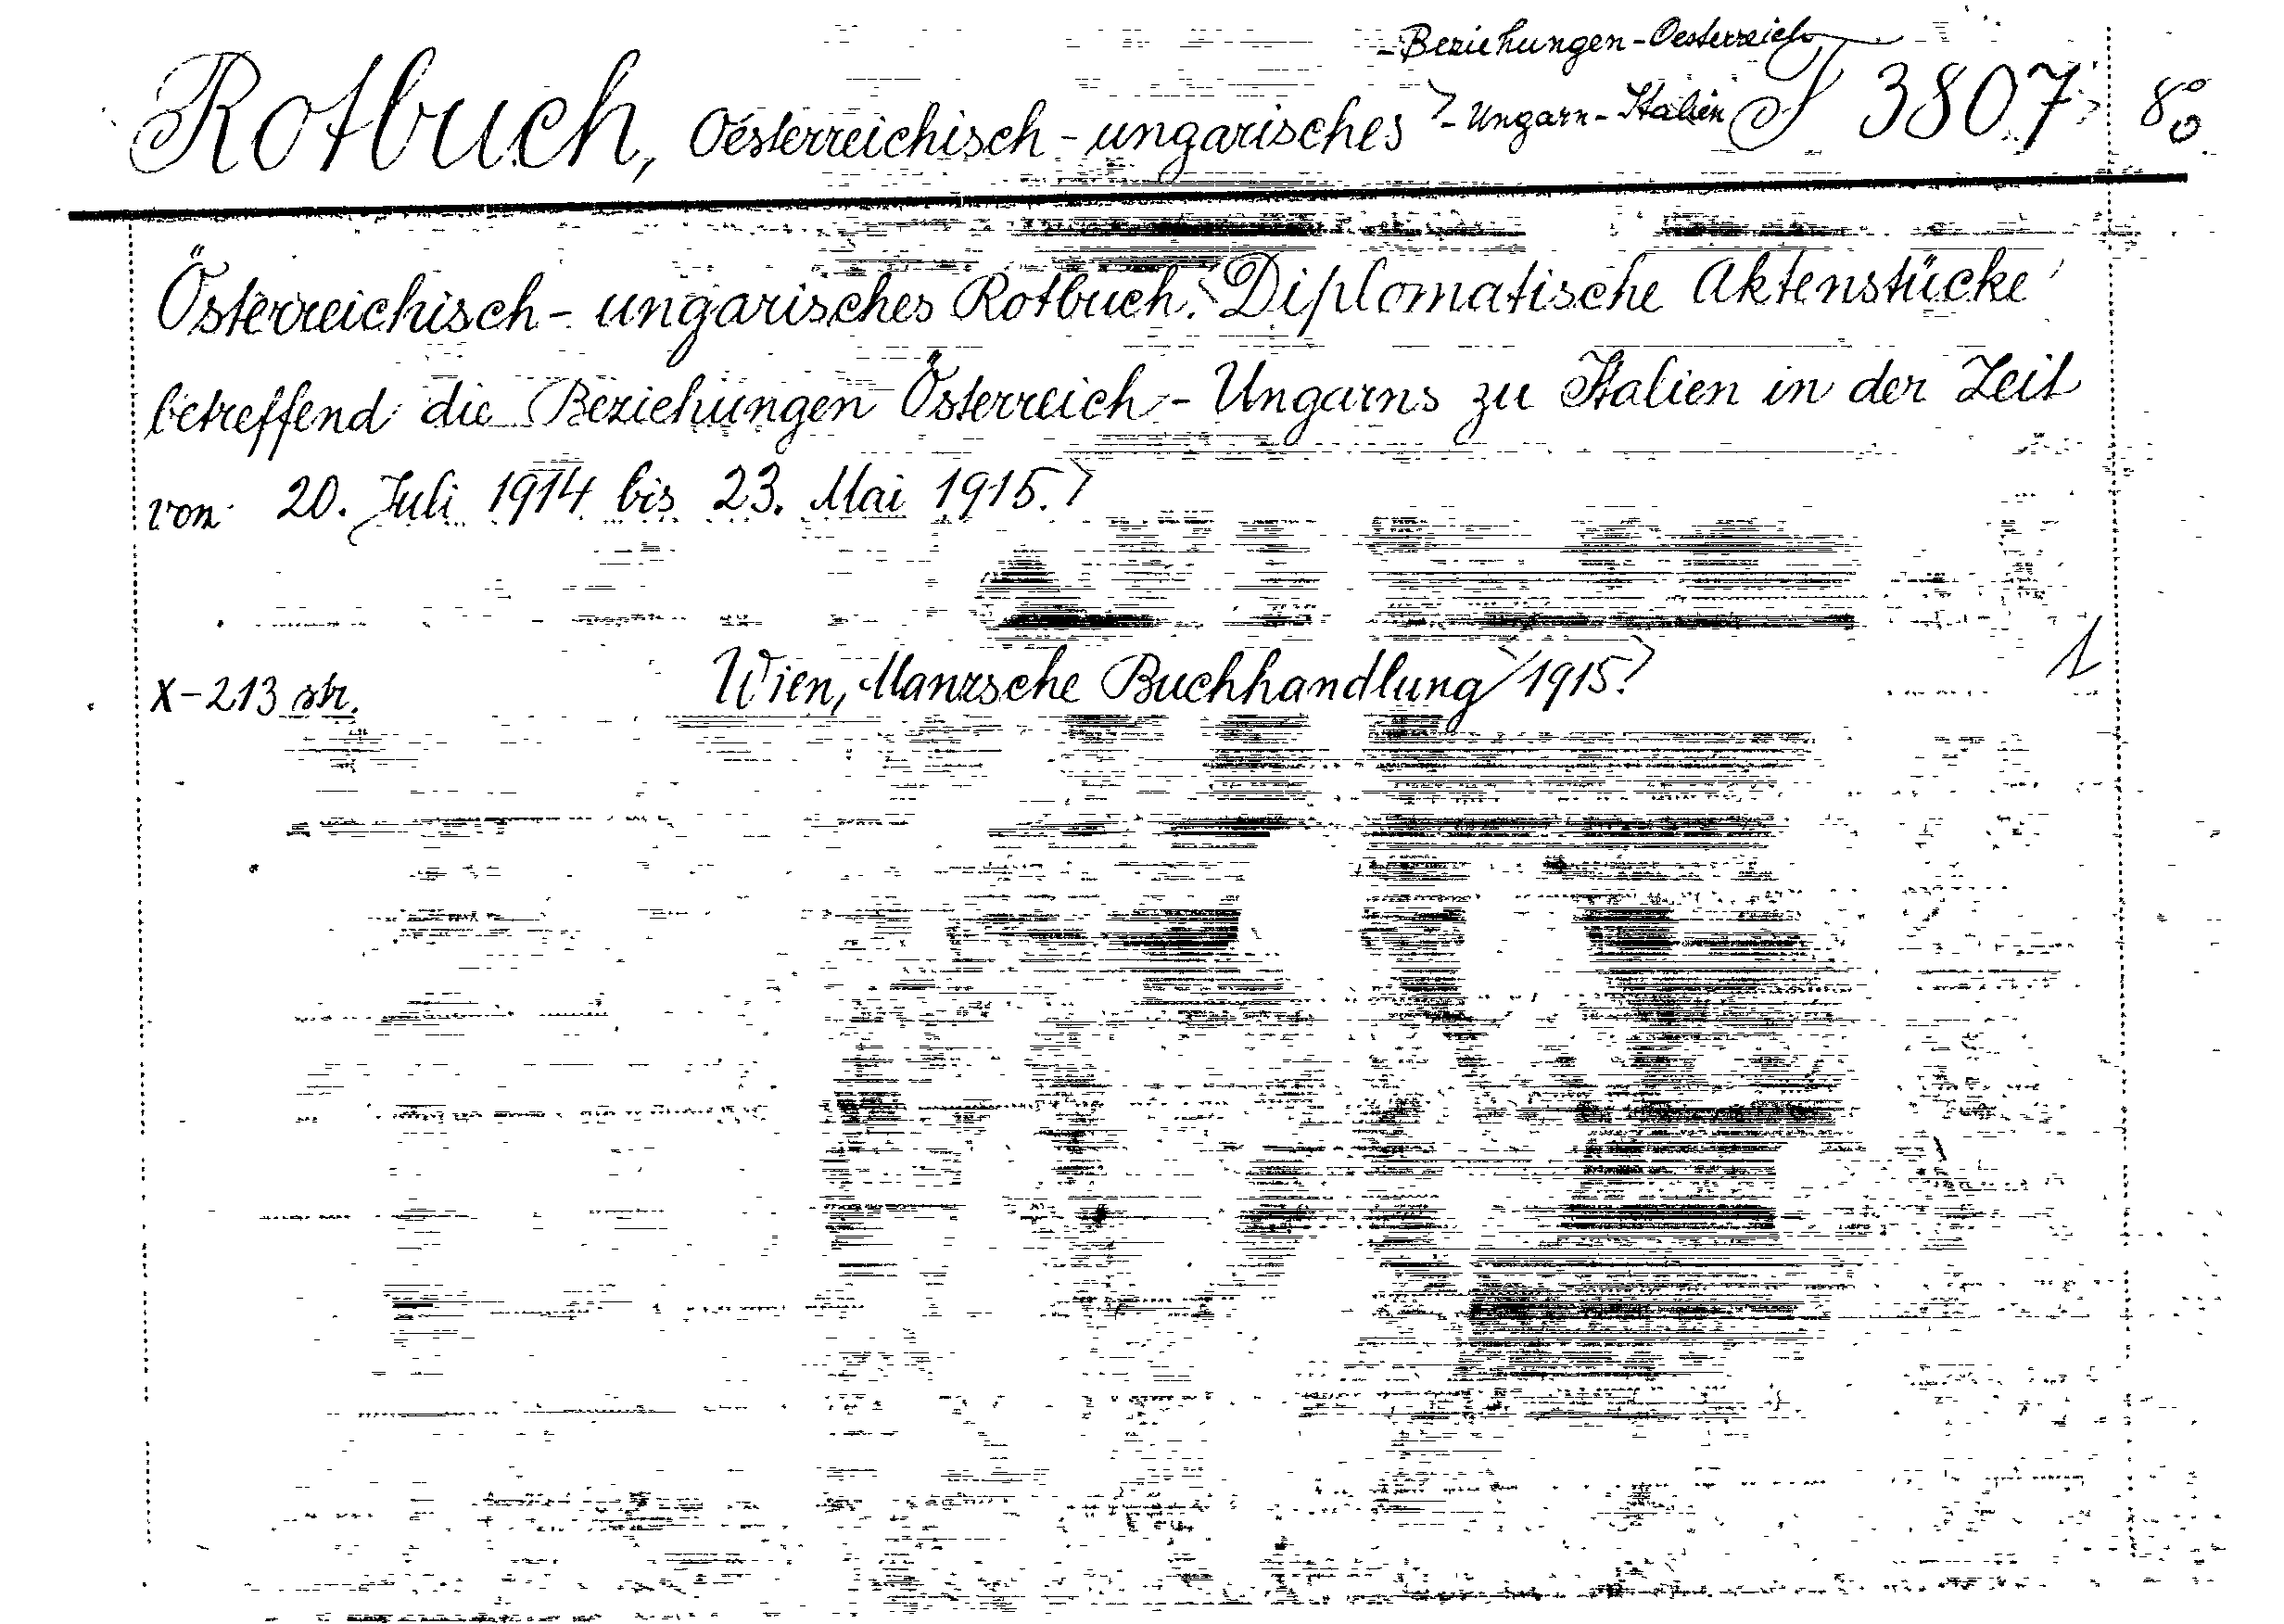 - Beziehungen - Oesterreich
Rotbuch, Oesterreichisch - ungarisches - Ungarn - Italien J 3807 8°
Österreichisch - ungarisches Rotbuch. Diplomatische Aktenstücke
betreffend die Beziehungen Österreich - Ungarns zu Italien in der Zeit
von 20. Juli 1914 bis 23. Mai 1915.
X-213 str. Wien, Manzsche Buchhandlung 1915. 1